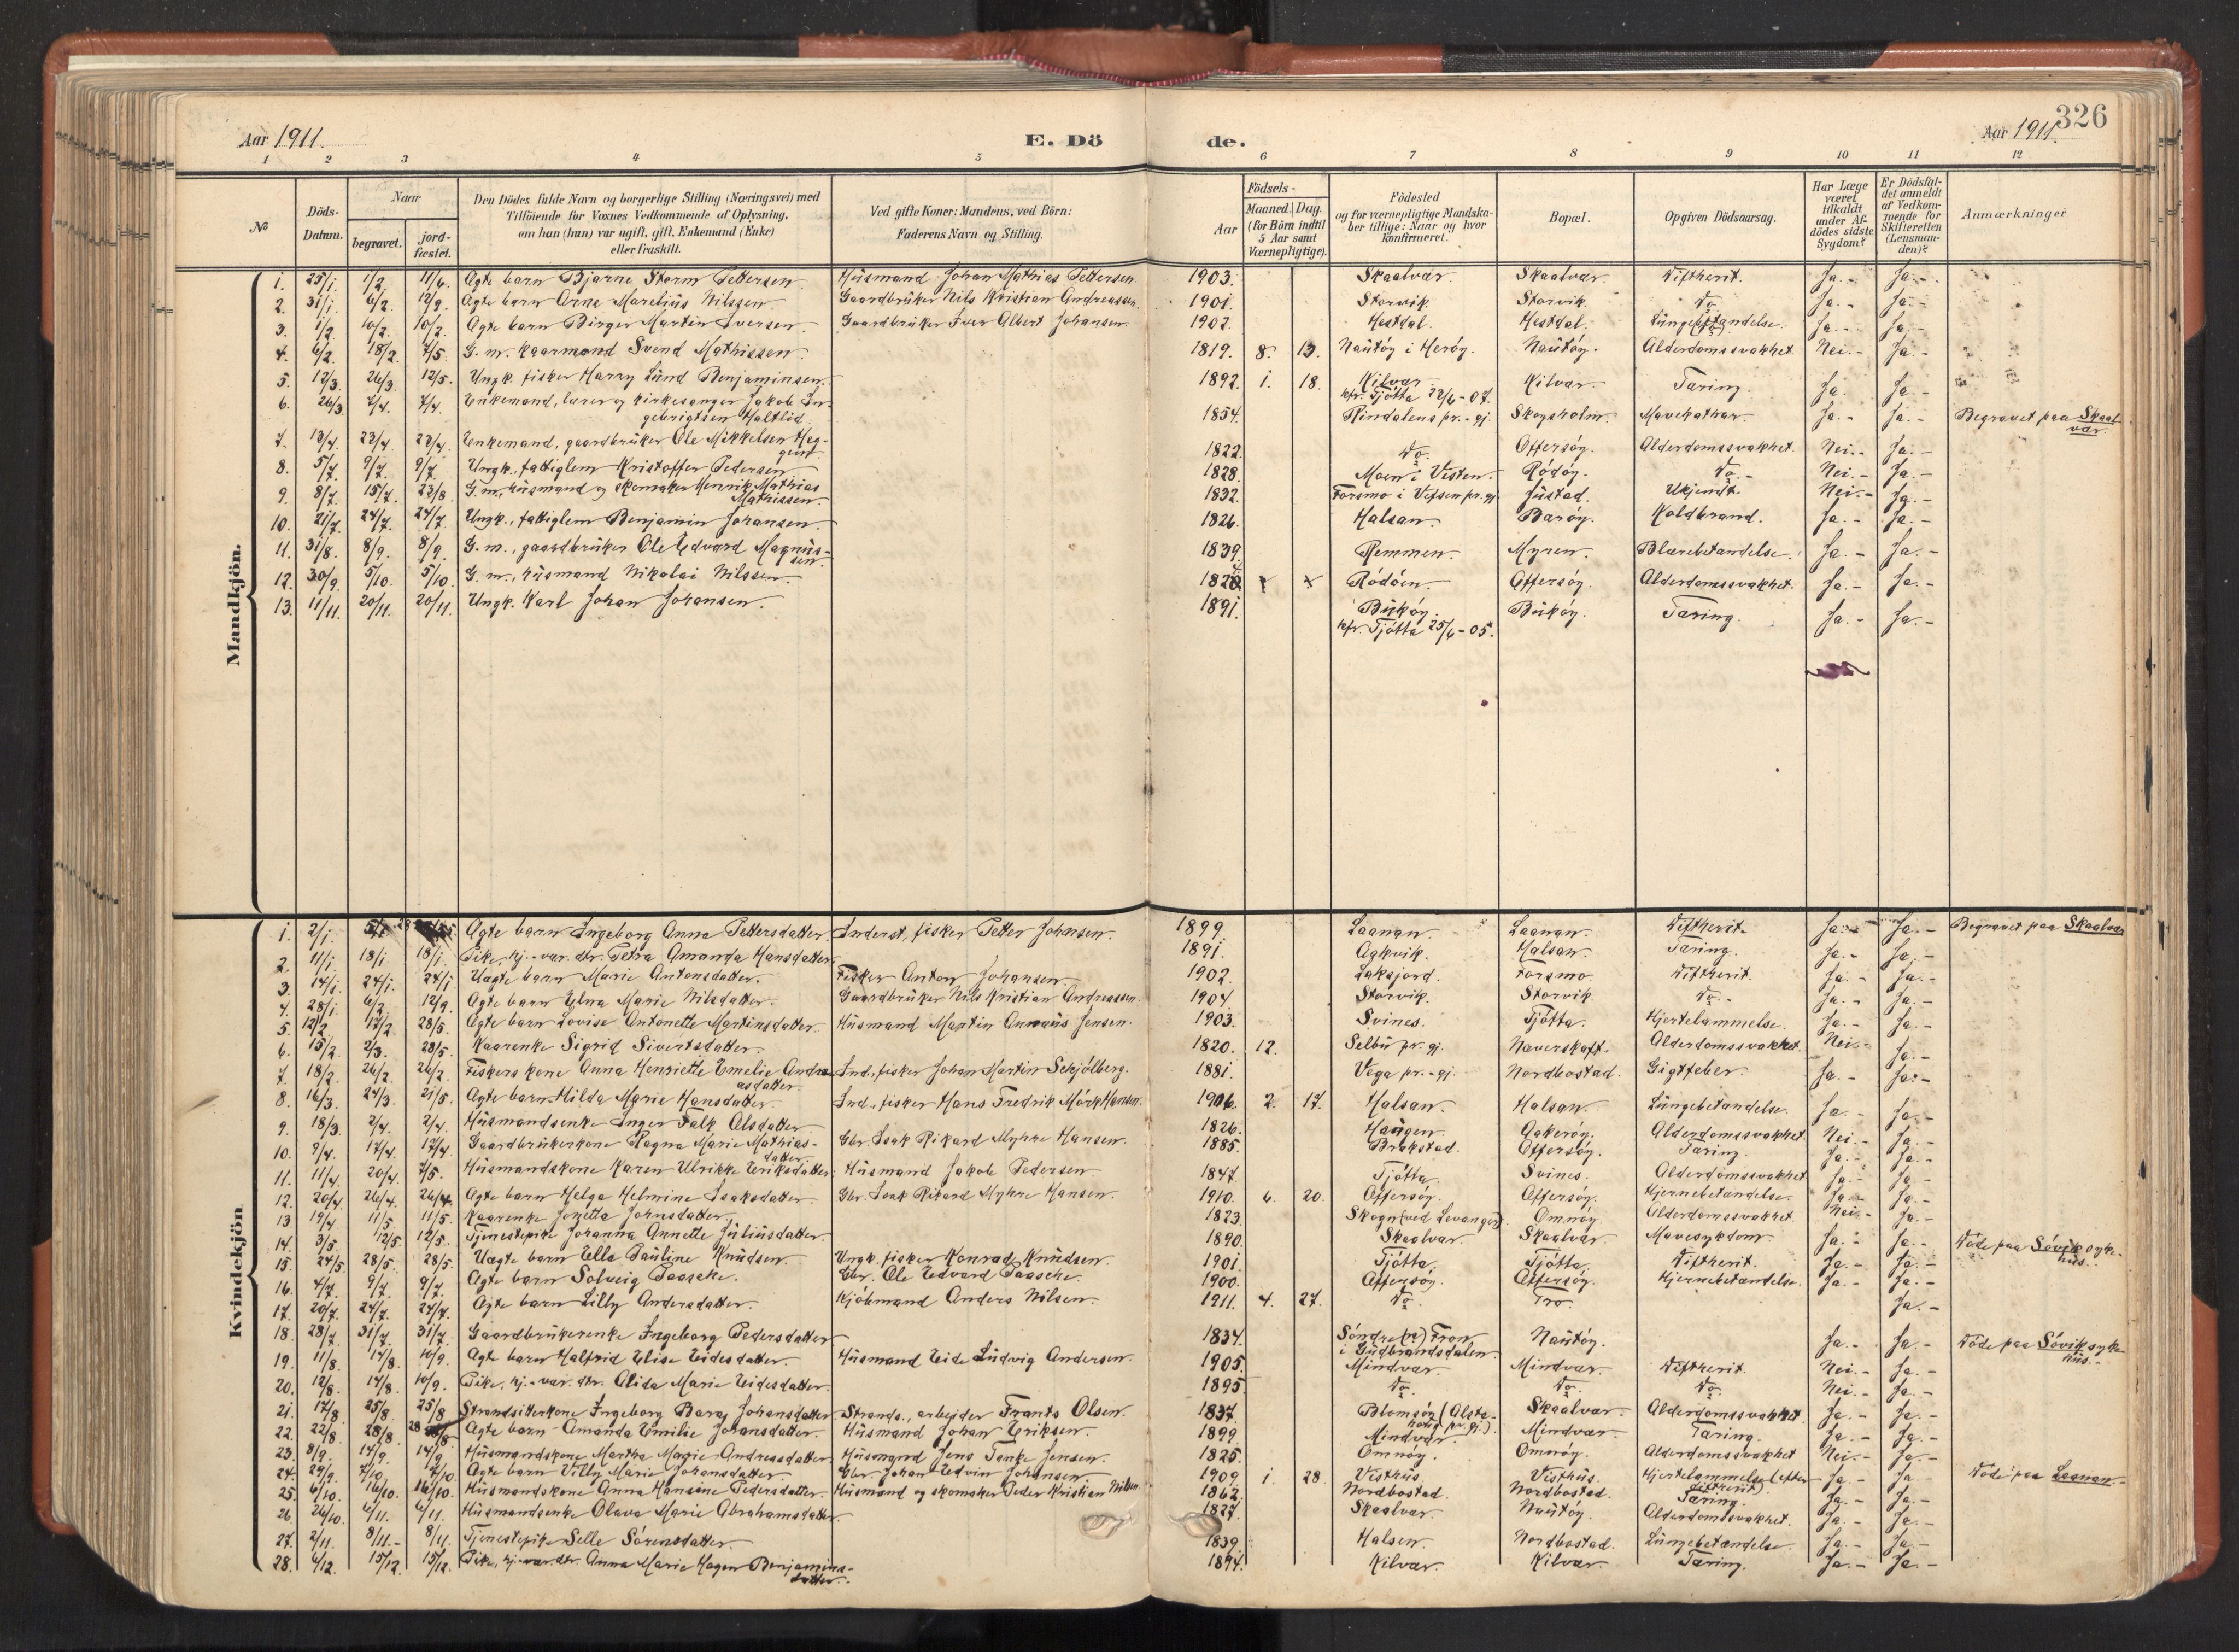 326
Aar 1911. E. Dö de. Aar 1911.
1 2 3 4 5 6 7 8 9 10 11 12
№ Döds-Datum. Naar begravet. jordfæstet. Den Dödes fulde Navn og borgerlige Stilling (Næringsvei) med Tilföiende for Voxnes Vedkommende af Oplysning, om han (hun) var ugift, gift, Enkemand (Enke) eller fraskilt. Ved gifte Koner: Mandens, ved Börn: Faderens Navn og Stilling. Födsels- Aar Maaned. Dag. (for Börn indtil 5 Aar samt Værnepligtige). Födested og for værnepligtige Mandskaber tillige: Naar og hvor konfirmeret. Bopæl. Opgiven Dödsaarsag. Har Læge været tilkaldt under Afdödes sidste Sygdom? Er Dödsfaldet anmeldt af Vedkommende for Skifteretten (Lensmanden)? Anmærkninger
Mandkjön.
1. 25/1. 1/2. 11/6. Ægte barn Bjarne Storm Pettersen. Husmand Johan Mathias Pettersen 1903. Skaalvær. Skaalvær. Diftherit. Ja.- Ja.-
2. 31/1. 6/2. 12/9. Ægte barn Arne Marelius Nilssen. Gaardbruker Nils Kristian Andreassen. 1901. Storvik. Storvik. Do. Ja.- Ja.-
3. 1/2. 10/2. 10/2. Ægte barn Birger Martin Iversen. Gaardbruker Iver Albert Johansen 1902. Hestdal. Hestdal. Lungebetændelse. Ja.- Ja.-
4. 6/2. 18/2. 7/5. G. m. kaarmand Svend Mathissen. 1819. 8. 13. Nautöy i Heröy. Nautöy. Alderdomssvakhet. Nei.- Ja.-
5. 12/3. 26/3. 12/5. Ungk. fisker Harry Lund Benjaminsen. 1892. 1. 18. Kilvær. Kilvær. Tæring. Ja. Ja.-
kfr. Tjötta 22/6-07.
6. 26/3. 7/4. 7/4. Enkemand, lærer og kirkesanger Jakob Ingebrigtsen Haltlid. 1854. Rindalens pr.-gj. Skogsholm. Mavekathar. Ja.- Ja.- Begravet paa Skaalvær.
7. 13/4. 23/4. 23/4. Enkemand, gaardbruker Ole Mikkelsen 1822. Do. Offersöy. Alderdomssvakhet. Nei.- Ja.-
8. 5/7. 9/7. 9/7. Ungk., fattiglem Kristoffer Pedersen. 1828. Moen i Visten. Rödöy. Do.- Nei.- Ja.-
9. 8/7. 15/7. 23/8. G. m., husmand og skomaker Henrik Mathias Mathissen. 1832. Forsmo i Vefsen pr. gj. Justad. Ukjendt. Nei.- Ja.-
10. 21/7. 24/7. 24/7. Ungk., fattiglem Benjamin Johansen. 1826. Halsan. Baröy. Koldbrand. Ja.- Ja.-
11. 31/8. 8/9. 8/9. G. m., gaardbruker Ole Edvard Magnussen. 1839. Remmen. Myren. Blærebetændelse. Ja.- Ja.-
12. 30/9. 5/10. 5/10. G. m., husmand Nikolai Nilssen. Rödöen. Offersöy. Alderdomssvakhet. Ja.- Ja.-
13. 11/11. 20/11. 20/11. Ungk. Karl Johan Johansen. 1891. Buköy. Buköy. Tæring. Ja.- Ja.-
kfr. Tjötta 25/6-05.
Kvindekjön
1. 2/1. Ægte barn Ingeborg Anna Pettersdatter. Inderst, fisker Petter Johnsen. 1899. Laanan. Laanan. Diftherit. Ja.- Ja.- Begravet paa Skaalvær
2. 11/1. 18/1. 18/1. Pike, hj.-vær. dtr. Petra Amanda Hansdatter. 1891. Aakvik. Halsan. Tæring. Ja.- Ja.-
3. 14/1. 24/1. 24/1. Uægte barn Marie Antonsdatter. Fisker Anton Johansen. 1902. Laksjord. Forsmo. Diftherit. Ja.- Ja.-
4. 28/1. 6/2. 12/9. Ægte barn Elna Marie Nilsdatter. Gaardbruker Nils Kristian Andreassen. 1904. Storvik. Storvik. Do.- Ja.- Ja.-
5. 12/2. 17/2. 28/5. Ægte barn Lovise Antonette Martinsdatter. Husmand Martin Annæus Jensen. 1903. Svines. Tjötta. Hjertelammelse. Ja.- Ja.-
6. 15/2. 2/3. 28/5. Kaarenke Sigrid Sivertsdatter. 1820. 12. Selbu pr. gj. Naverskoft. Alderdomssvakhet. Nei.- Ja.-
7. 18/2. 26/2. 26/2. Fiskers kone Anna Henriette Emelie Andreasdatter Ind., fisker Johan Martin Schjölberg. 1881. Vega pr.-gj. Nordbostad. Gigtfeber. Ja.- Ja.-
8. 16/3. 24/3. 21/5. Ægte barn Hilda Marie Hansdatter. Ind., fisker Hans Fredrik Mörk Hansen. 1906. 2. 17. Halsan. Halsan. Lungebetændelse. Ja.- Ja.-
9. 18/3. 2/4. 2/4. Husmandsenke Inger Falk Olsdatter. 1826. Haugen. Aakeröy. Alderdomssvakhet. Nei.- Ja.-
10. 9/4. 17/4. 17/4. Gaardbrukerkone Ragna Marie Mathiasdatter. Gbr. Isak Rikard Myhre Hansen. 1885. Brakstad. Offersöy. Tæring. Ja.- Ja.-
11. 11/4. 20/4. 7/5. Husmandskone Karen Ulrikke Eriksdatter. Husmand Jakob Pedersen. 1847. Tjötta. Svines. Alderdomssvakhet. Ja.- Ja.-
12. 20/4. 26/4. 26/4. Ægte barn Helga Helmine Isaksdatter. Gbr. Isak Rikard Myhre Hansen. 1910. 6. 20. Offersöy. Offersöy. Hjernebetændelse. Ja.- Ja.-
13 19/4. 11/5. 11/5. Kaarenke Jonetta Johnsdatter. 1823. Skogn (ved Levanger). Omnöy. Alderdomssvakhet. Nei.- Ja.-
14. 3/5. 12/5 12/5. Tjenestepike Johanna Annette Juliusdatter. 1890. Skaalvær. Skaalvær. Mavesykdom. Ja.- Ja.- Döde paa Sövik sykehus.
15. 24/5. 28/5. 28/5. Uægte barn Ella Pauline Knudsen. Ungk. fisker Konrad Knudsen. 1901. Tjötta. Tjötta. Diftherit. Ja.- Ja.-
16. 4/7. 9/7. 9/7. Ægte barn Solveig Paasche. Gbr. Ole Edvard Paasche. 1900. Offersöy. Offersöy. Hjernebetændelse. Ja.- Ja.-
17. 20/7. 24/7. 24/7. Ægte barn Lilly Andersdatter. Kjöbmand Anders Nilsen. 1911. 4. 27. Do. Tro. Ja.-
18. 28/7. 31/7. 31/7. Gaardbrukerenke Ingeborg Pedersdatter 1834. Söndre Fron i Gudbrandsdalen. Nautöy. Ja.- Ja.- Döde paa Söviksykehus.-
19. 11/8. 14/8. 10/9. Ægte barn Halfrid Elise Eidesdatter. Husmand Eide Ludvig Andersen. 1905. Mindvær. Mindvær. Diftherit. Nei.- Ja.-
20. 12/8. 14/8. 10/9. Pike, hj.-vær. dtr. Alida Marie Eidesdatter. 1895. Do. Do. Do. Nei.- Ja.-
21. 17/8. 25/8. 25/8. Strandsitterkone Ingeborg Berg Johansdatter. Strands., arbeider Frants Olsen. 1837. Blomsöy (Alstahoug pr. gj.). Skaalvær. Alderdomssvakhet. Ja.- Ja.-
22. 22/8. 28/8. 28/8. Ægte barn Amanda Emilie Johansdatter. Husmand Johan Eriksen. 1899. Mindvær. Mindvær. Tæring. Ja.- Ja.-
23. 8/9. 14/9. 14/9. Husmandskone Martha Marie Andreasdatter. Husmand Jens Tanke Jensen. 1825. Omnöy. Omnöy. Alderdomssvakhet Nei.- Ja.-
24. 29/9. 7/10. 7/10. Ægte barn Villy Marie Johansdatter. Gbr. Johan Edvin Johansen. 1909. 1. 28. Visthus. Visthus. Hjertelammelse (efter diftherit). Ja.- Ja.- Döde paa Laanan.-
25. 6/10. 16/10. 16/10. Husmandskone Anna Hansine Pedersdatter. Husmand og skomaker Peder Kristian Nilsen 1862. Nordbostad. Nordbostad. Tæring. Ja.- Ja.-
26 26/10. 6/11. 6/11. Husmandsenke Olava Marie Abrahamsdatter. 1827. Skaalvær. Nautöy. Alderdomssvakhet. Ja.- Ja.-
27. 2/11. 8/11.- 8/11. Tjenestepike Selle Sörensdatter. 1839. Halsen. Nordbostad. Lungebetændelse. Ja.- Ja.-
28. 6/12. 15/12. 15/12. Pike, hj.-vær. dtr. Anna Marie Hagen Benjaminsdatter. 1894. Kilvær. Kilvær. Tæring. Ja.- Ja.-